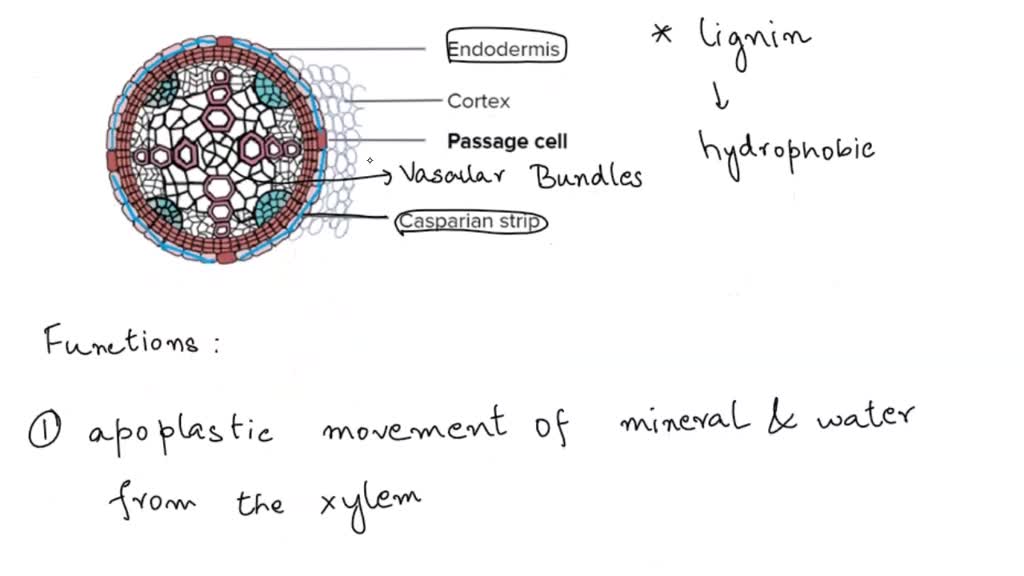 Endodermis
* lignin
↓
Cortex
Passage cell
hydrophobic
→ Vascular Bundles
Casparian strip
Functions :
① apoplastic movement of mineral & water
from the xylem